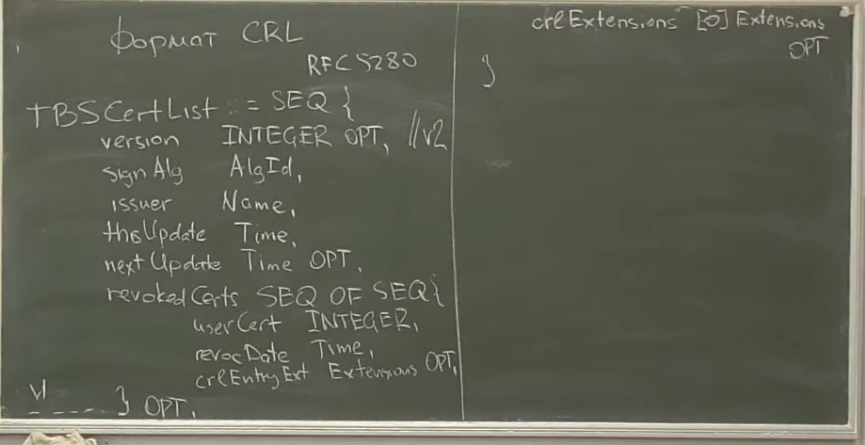 Формат CRL
RFC 5280
TBSCertList ::= SEQ {
version INTEGER OPT, //v2
signAlg AlgId,
issuer Name,
thisUpdate Time,
nextUpdate Time OPT,
revokedCerts SEQ OF SEQ{
userCert INTEGER,
revocDate Time,
crlEntryExt Extensions OPT,
} OPT,
v1
crlExtensions [0] Extensions
OPT
}